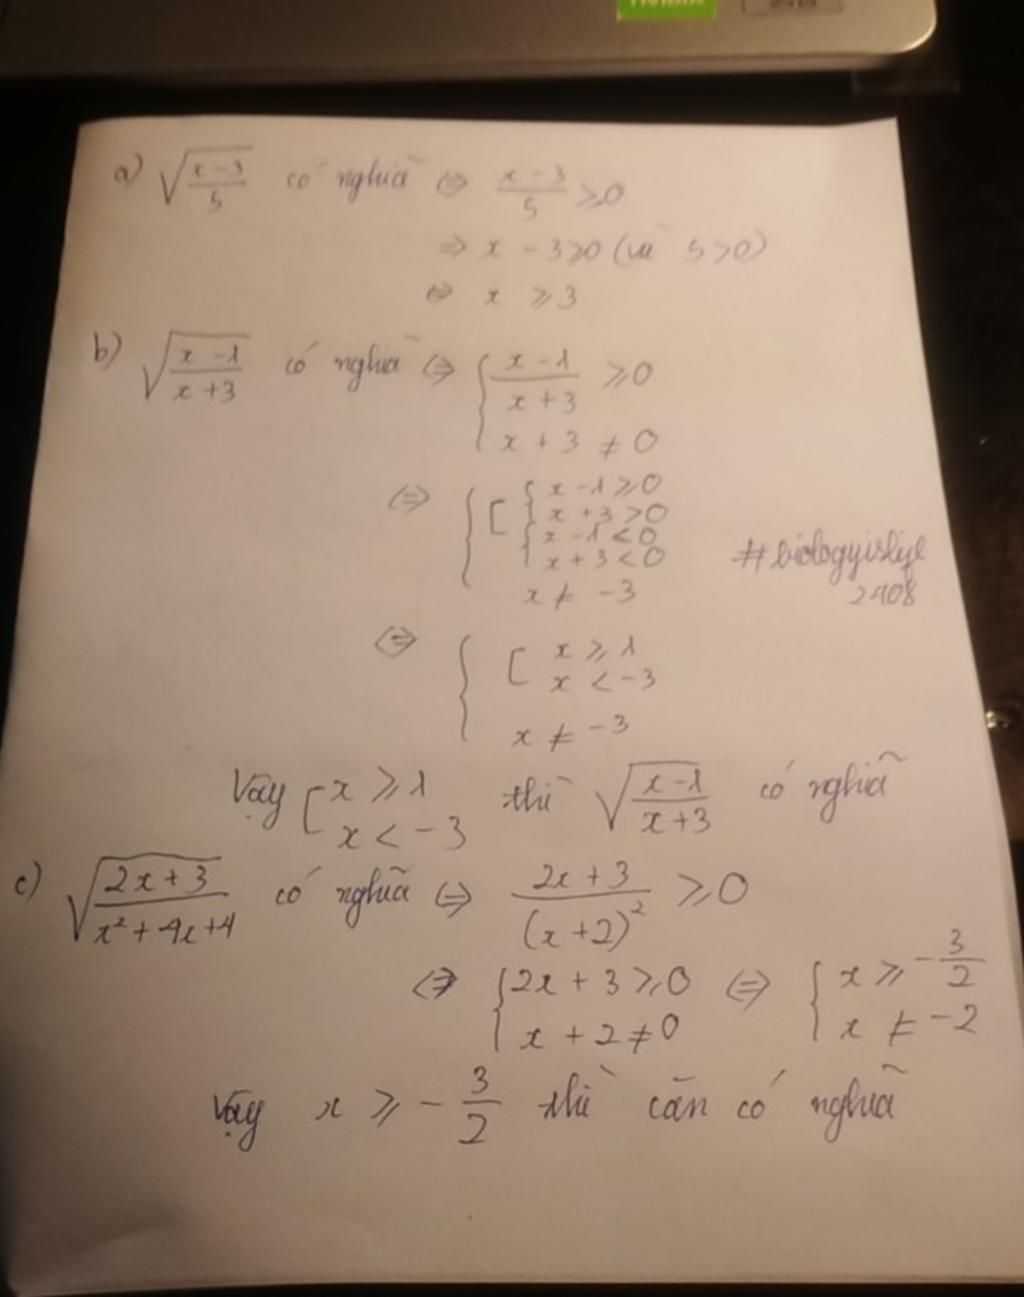 a) √((x-3)/5) có nghĩa ⇔ (x-3)/5 ≥ 0
⇒ x - 3 ≥ 0 (vì 5 > 0)
⇔ x ≥ 3
b) √((x-1)/(x+3)) có nghĩa ⇔ { (x-1)/(x+3) ≥ 0
x + 3 ≠ 0
⇔ { [ { x - 1 ≥ 0
x + 3 > 0
{ x - 1 < 0
x + 3 < 0
x ≠ -3
#biologyislife
2408
⇔ { [ x ≥ 1
x < -3
x ≠ -3
Vậy [ x ≥ 1 thì √((x-1)/(x+3)) có nghĩa
x < -3
c) √((2x+3)/(x²+4x+4)) có nghĩa ⇔ (2x+3)/(x+2)² ≥ 0
⇔ { 2x + 3 ≥ 0 ⇔ { x ≥ -3/2
x + 2 ≠ 0 x ≠ -2
Vậy x ≥ -3/2 thì căn có nghĩa